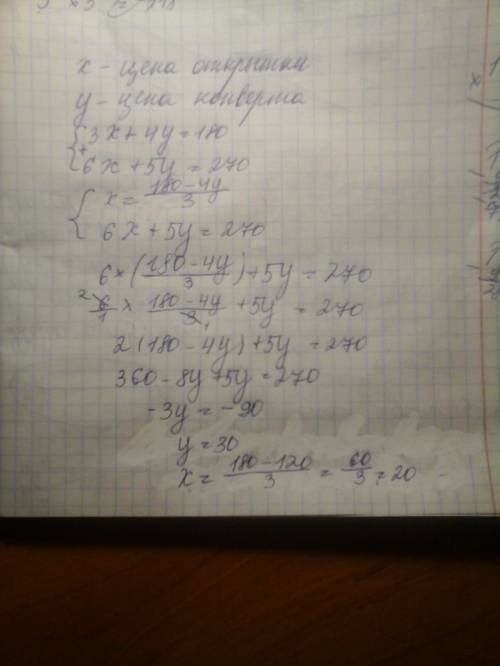 x - цена открытки
y - цена конверта
{3x + 4y = 180
6x + 5y = 270
{x = \frac{180 - 4y}{3}
6x + 5y = 270
6 × (\frac{180 - 4y}{3}) + 5y = 270
\frac{6}{1} × \frac{180 - 4y}{3} + 5y = 270
2(180 - 4y) + 5y = 270
360 - 8y + 5y = 270
-3y = -90
y = 30
x = \frac{180 - 120}{3} = \frac{60}{3} = 20